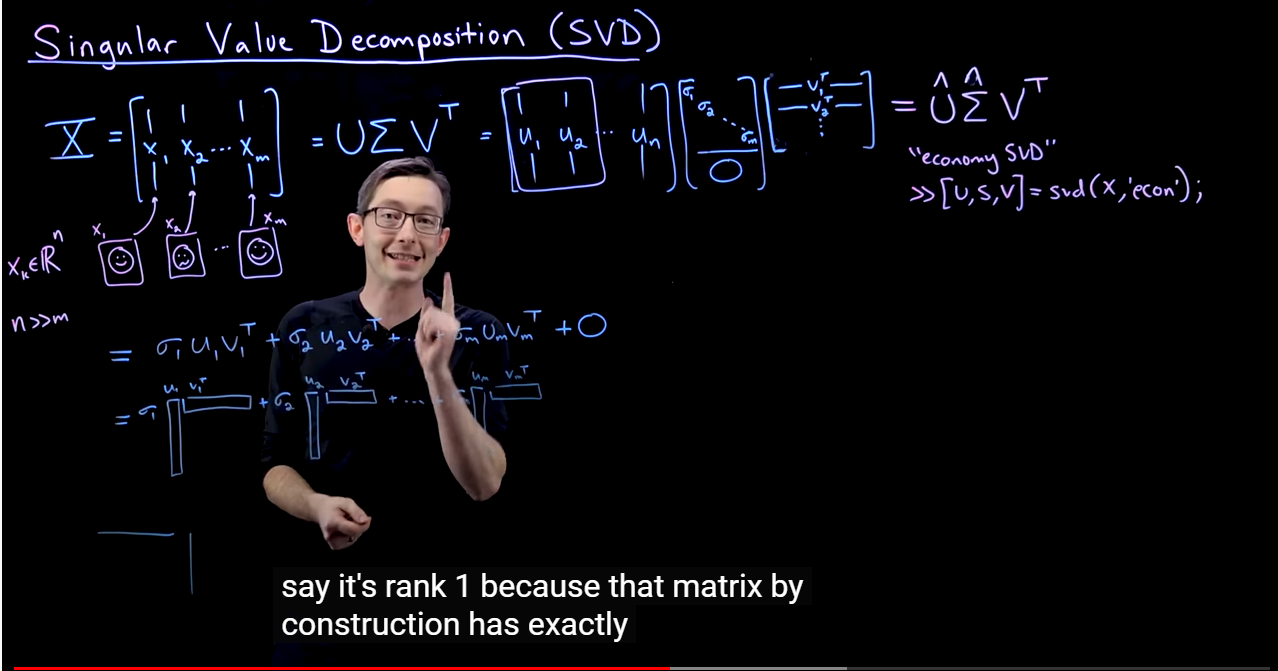 Singular Value Decomposition (SVD)
X = [x₁ x₂ ... xₘ] = UΣVᵀ = [u₁ u₂ ... uₙ] [σ₁ σ₂ ⋱ σₘ 0] [v₁ᵀ v₂ᵀ ⋮] = Û Σ̂ Vᵀ
"economy SVD"
>> [U,S,V] = svd(X,'econ');
x₁ x₂ ... xₘ
xₖ∈ℝⁿ
n>>m
= σ₁u₁v₁ᵀ + σ₂u₂v₂ᵀ + ... + σₘuₘvₘᵀ + 0
u₁ v₁ᵀ u₂ v₂ᵀ uₘ vₘᵀ
= σ₁ + σ₂ + ... +
say it's rank 1 because that matrix by
construction has exactly